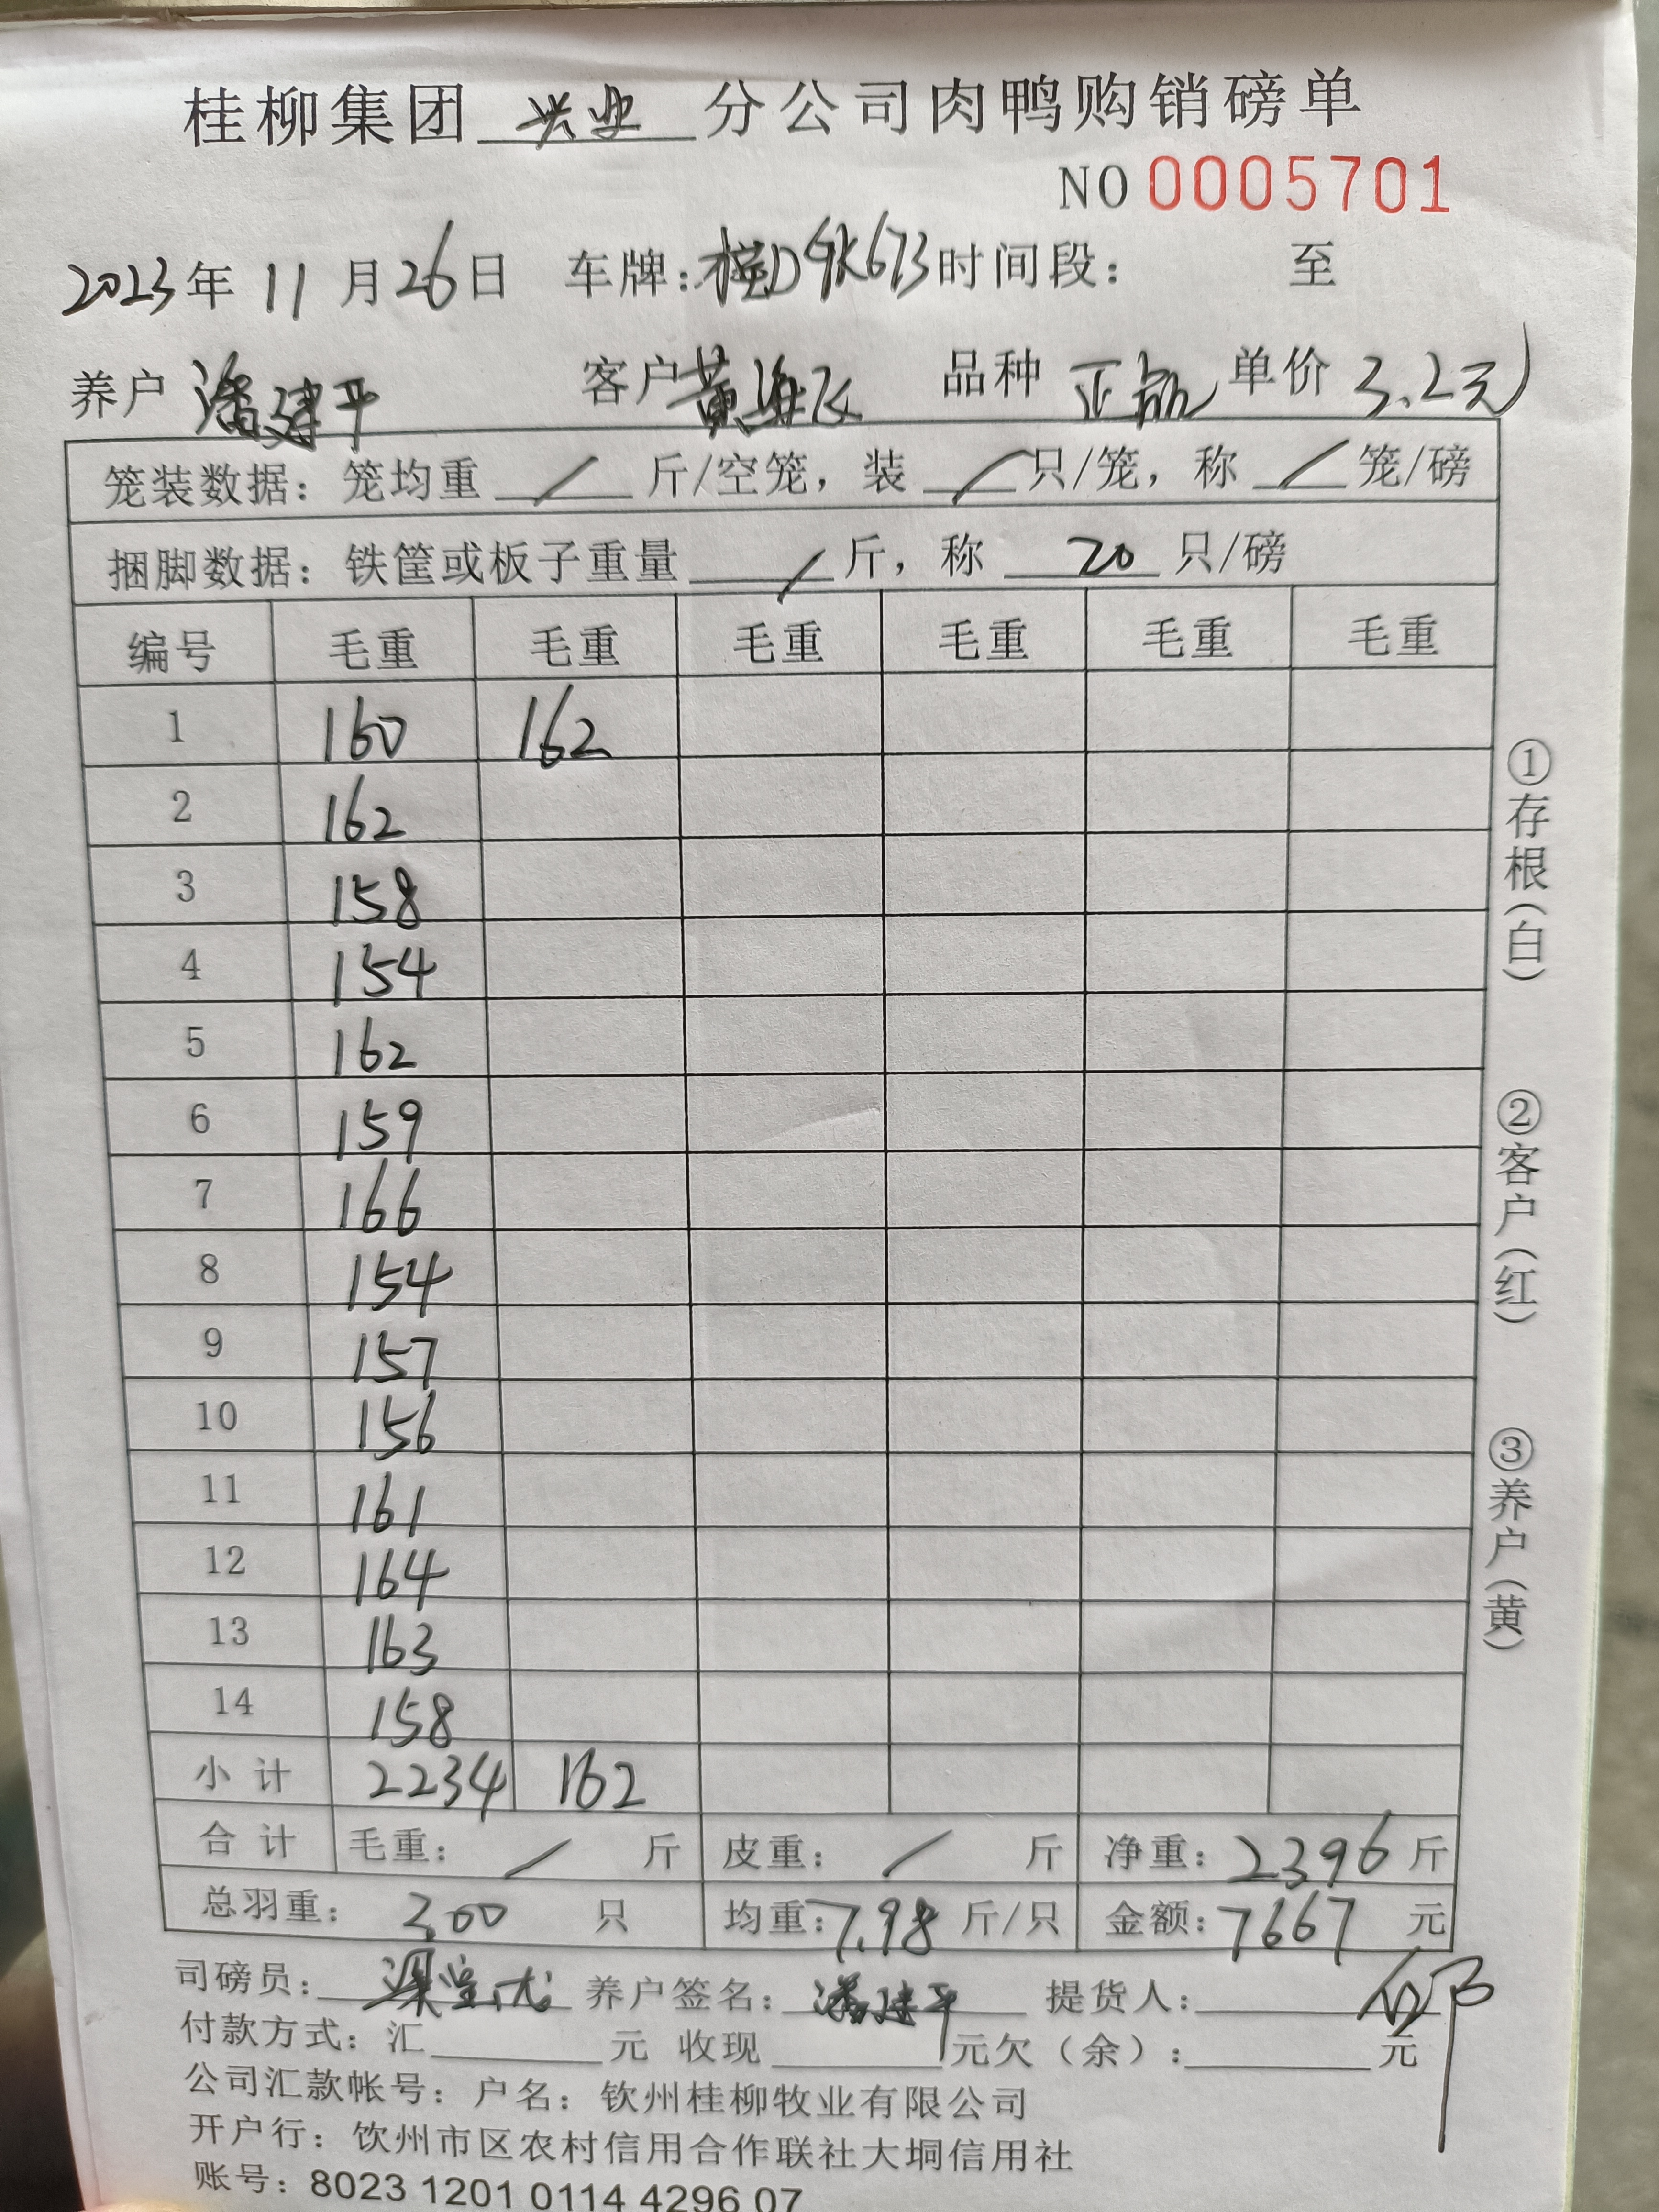 桂柳集团 兴业 分公司肉鸭购销磅单
NO 0005701
2023年 11 月26日 车牌:桂D9K673 时间段: 至
养户 潘建平 客户 黄海飞 品种 正品 单价 3.2元
笼装数据: 笼均重 / 斤/空笼, 装 / 只/笼, 称 / 笼/磅
捆脚数据: 铁筐或板子重量 / 斤, 称 20 只/磅
编号 毛重 毛重 毛重 毛重 毛重 毛重
1 160 162
2 162
3 158
4 154
5 162
6 159
7 166
8 154
9 157
10 156
11 161
12 164
13 163
14 158
小计 2234 162
合计 毛重: / 斤 皮重: / 斤 净重: 2396 斤
总羽重: 300 只 均重: 7.98 斤/只 金额: 7667 元
司磅员: 养户签名: 潘建平 提货人:
付款方式: 汇 元 收现 元欠(余): 元
公司汇款帐号: 户名: 钦州桂柳牧业有限公司
开户行: 饮州市区农村信用合作联社大垌信用社
账号: 8023 1201 0114 4296 07
①存根(白)
②客户(红)
③养户(黄)